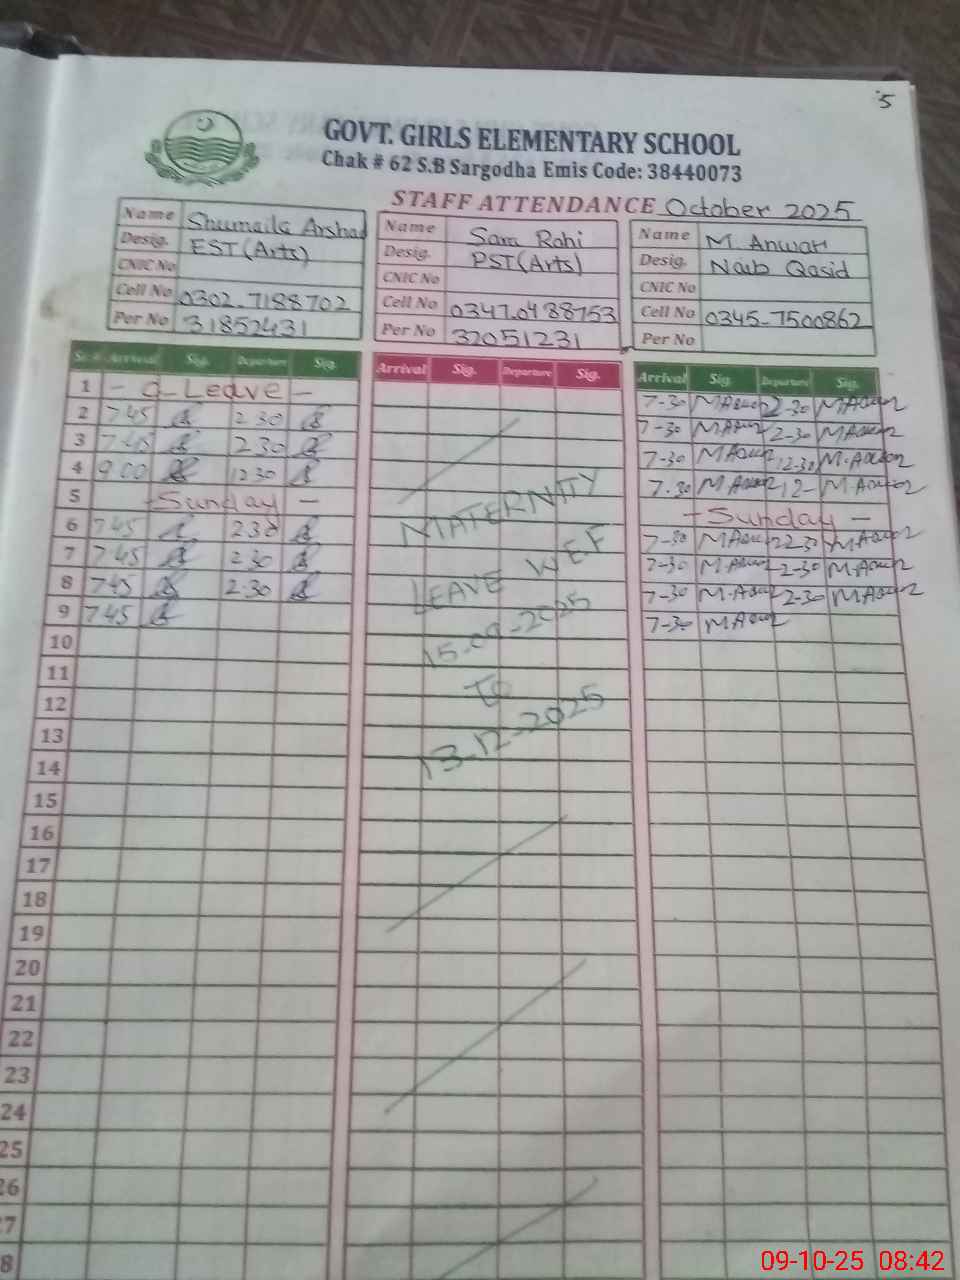 5
GOVT. GIRLS ELEMENTARY SCHOOL
Chak # 62 S.B Sargodha Emis Code: 38440073
STAFF ATTENDANCE October 2025
Name Shumaila Arshad
Desig. EST (Arts)
CNIC No
Cell No 0302-7188702
Per No 31852431
Name Sara Rahi
Desig. PST (Arts)
CNIC No
Cell No 0347-0488753
Per No 32051231
Name M. Anwar
Desig. Naib Qasid
CNIC No
Cell No 0345-7500862
Per No
Sr.# Arrival Sig. Departure Sig.
Arrival Sig. Departure Sig.
Arrival Sig Departure Sig.
1 - C-Leave - 7-30 MAnwar 2-30 MAnwar
2 745 2 30 7-30 MAnwar 2-30 MAnwar
3 7-45 2 30 7-30 MAnwar 12-30 M.Anwar
4 9 00 12 30 7.30 MAnwar 12- M.Anwar
5 - Sunday - - Sunday -
6 745 230 7-30 MAnwar 2-30 MAnwar
7 745 2 30 7-30 M.Anwar 2-30 M.Anwar
8 745 2.30 7-30 M.Anwar 2-30 MAnwar
9 745 7-30 MAnwar
MATERNITY
LEAVE W.E.F
15-09-2025
To
13-12-2025
10
11
12
13
14
15
16
17
18
19
20
21
22
23
24
25
26
27
8
09-10-25 08:42